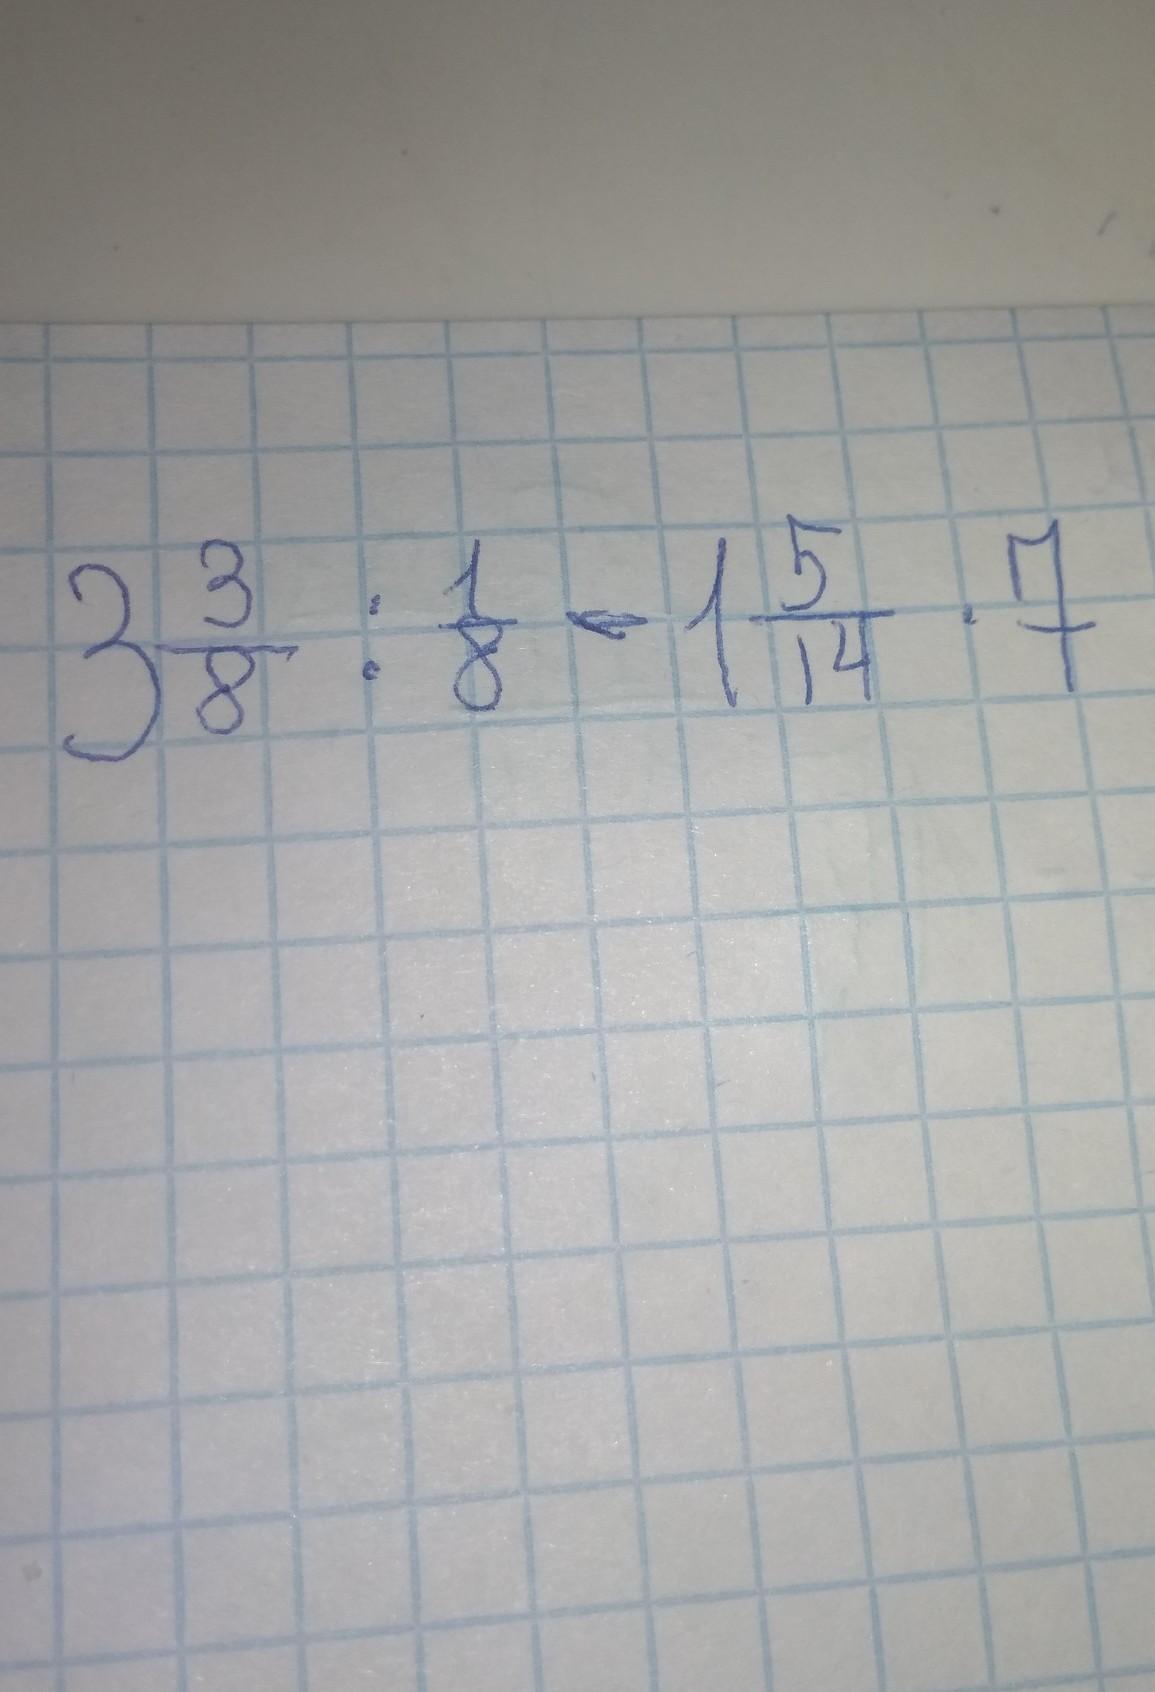 3 3/8 : 1/8 - 1 5/14 · 7